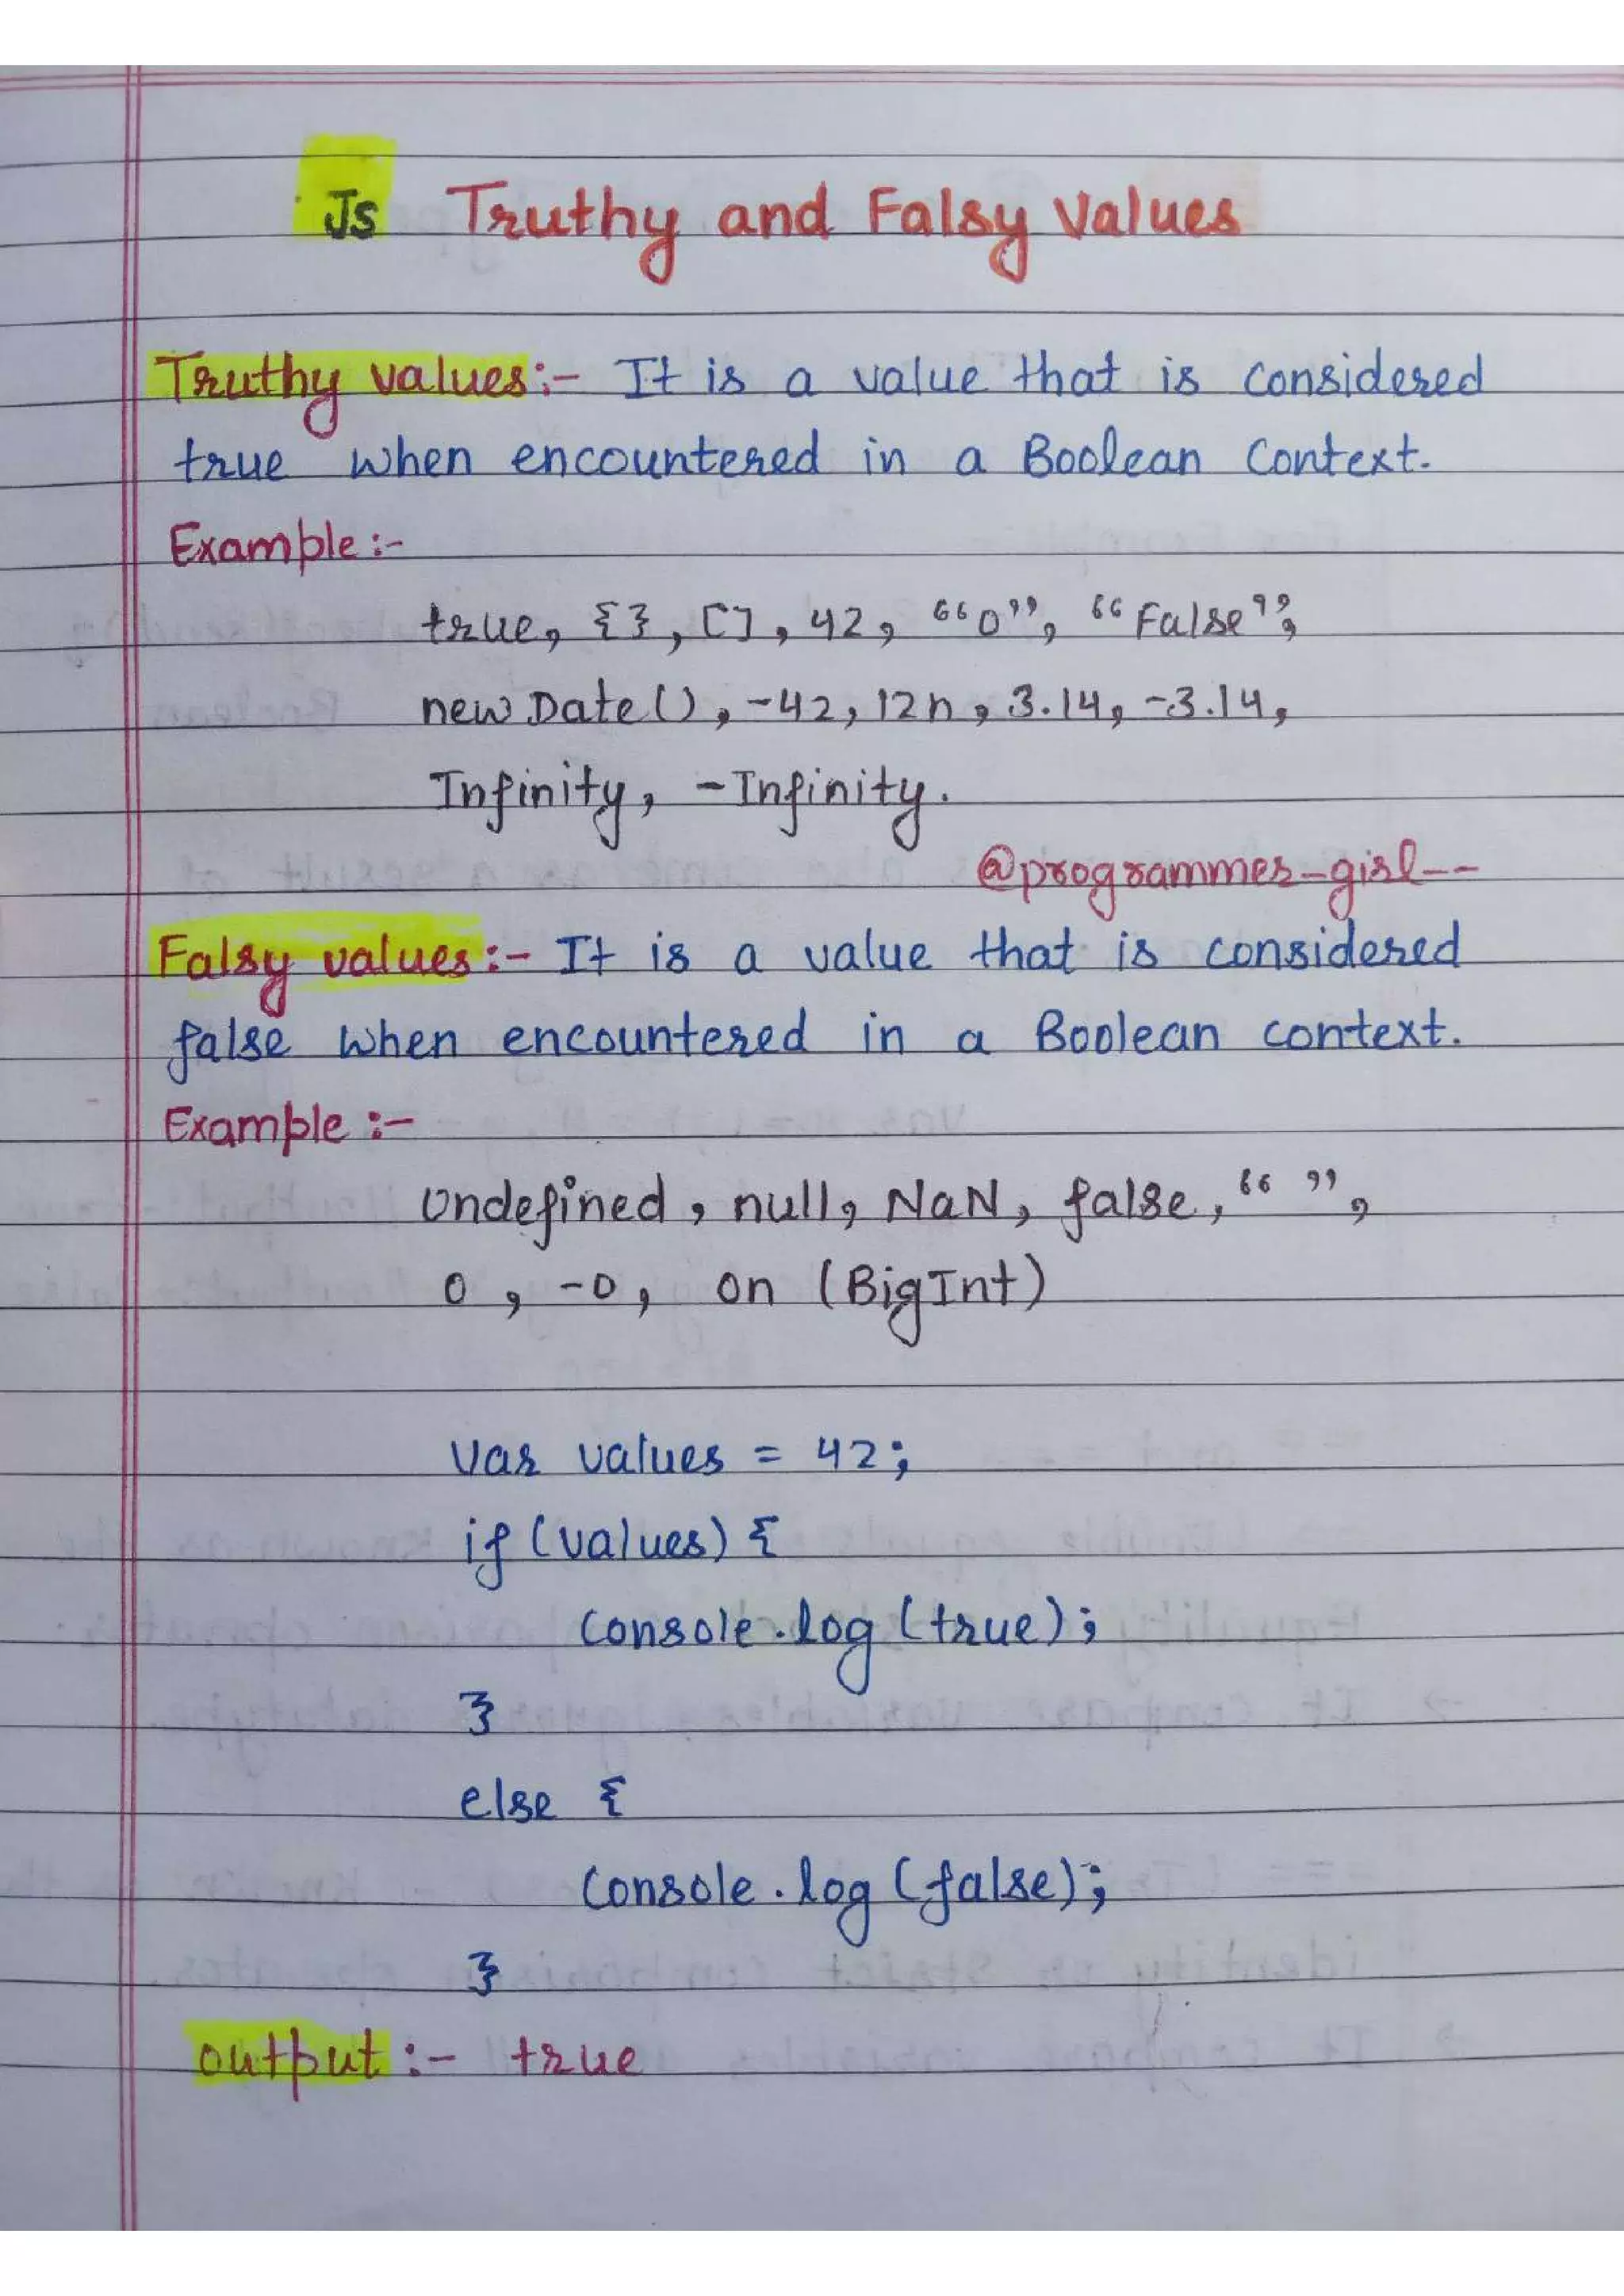 Js Truthy and Falsy Values
Truthy values:- It is a value that is considered
true when encountered in a Boolean Context.
Example:-
true, {}, [], 42, "0", "False",
new Date(), -42, 12n, 3.14, -3.14,
Infinity, -Infinity.
@programmer_girl--
Falsy values:- It is a value that is considered
false when encountered in a Boolean context.
Example:-
undefined, null, NaN, false, " ",
0, -0, 0n (BigInt)
Var values = 42;
if (values) {
Console.log (true);
}
else {
Console.log (false);
}
output:- true